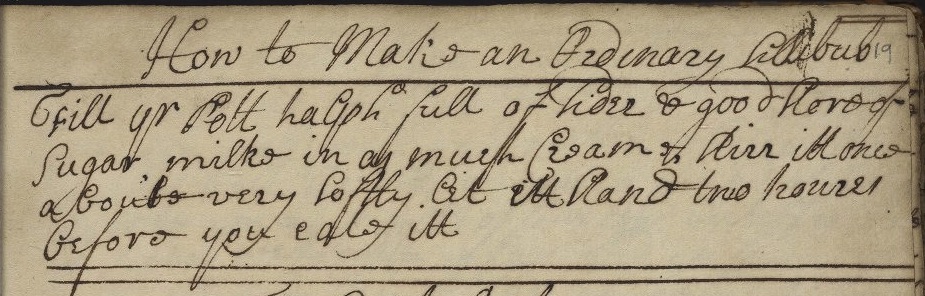 How to Make an Ordinary sillibub 19
ffill yr Pott halfh full of sider & good store of
Sugar, milke in as much Creame, stirr itt once
aboute very softly. let itt stand two houres
before you eate itt